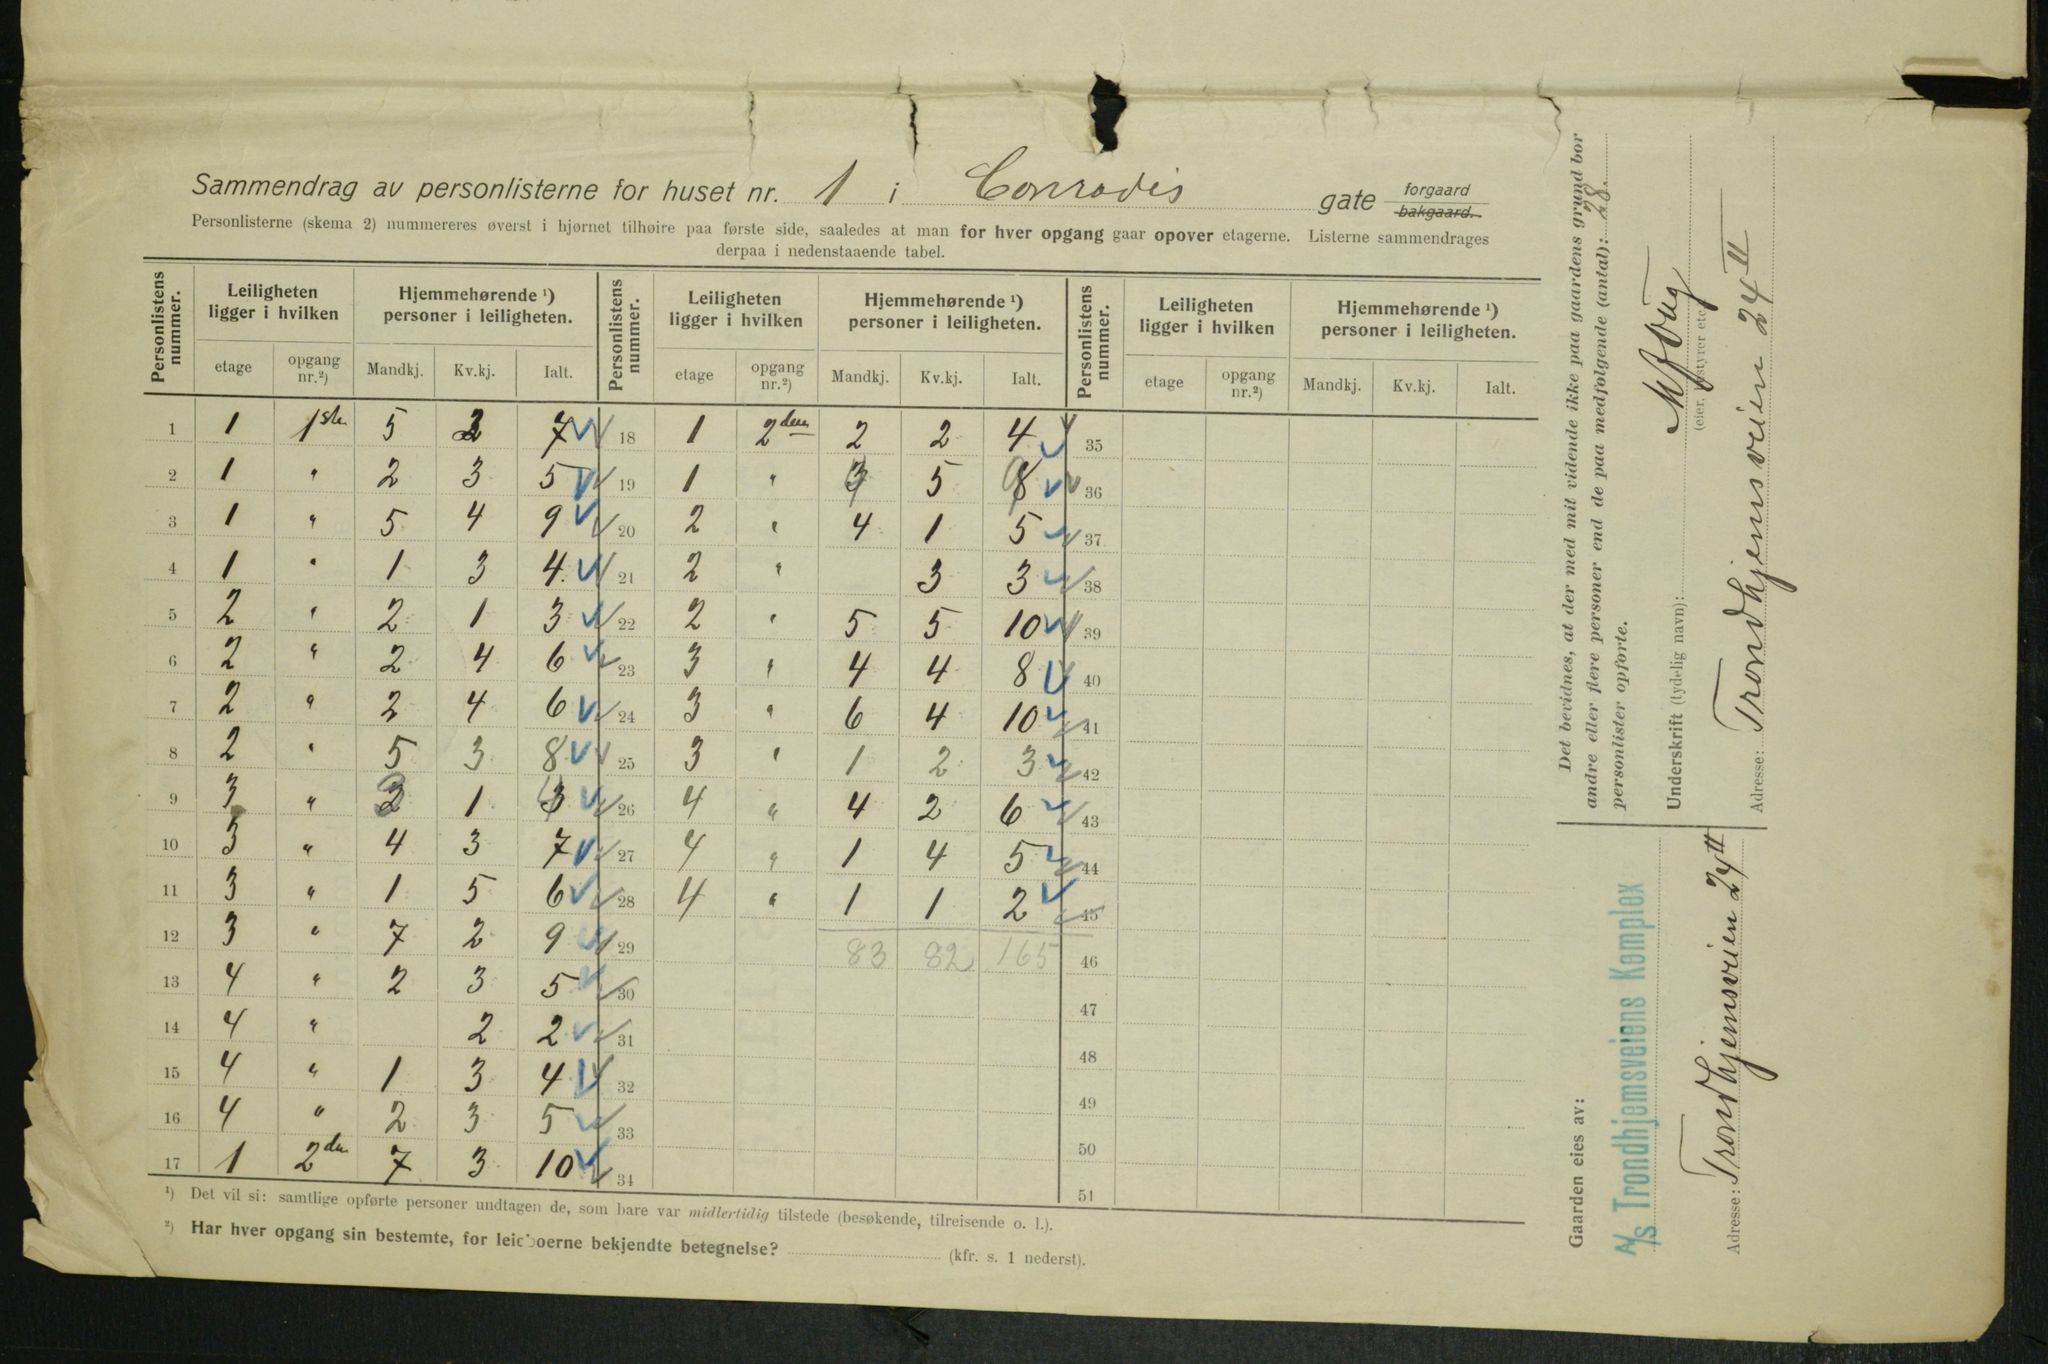 Sammendrag av personlisterne for huset nr. 1 i Conradis gate forgaard bakgaard.
Personlisterne (skema 2) nummereres øverst i hjørnet tilhøire paa første side, saaledes at man for hver opgang gaar opover etagerne. Listerne sammendrages
derpaa i nedenstaaende tabel.
Personlistens nummer. Leiligheten ligger i hvilken Hjemmehørende ¹) personer i leiligheten. Personlistens nummer. Leiligheten ligger i hvilken Hjemmehørende ¹) personer i leiligheten. Personlistens nummer. Leiligheten ligger i hvilken Hjemmehørende ¹) personer i leiligheten.
etage opgang nr.²) Mandkj. Kv.kj. Ialt. etage opgang nr.²) Mandkj. Kv.kj. Ialt. etage opgang nr.²) Mandkj. Kv.kj. Ialt.
1 1 1ste 5 2 7 18 1 2den 2 2 4 35
2 1 " 2 3 5 19 1 " 5 36
3 1 " 5 4 9 20 2 " 4 1 5 37
4 1 " 1 3 4 21 2 " 3 3 38
5 2 " 2 1 3 22 2 " 5 5 10 39
6 2 " 2 4 6 23 3 " 4 4 8 40
7 2 " 2 4 6 24 3 " 6 4 10 41
8 2 " 5 3 8 25 3 " 1 2 3 42
9 3 " 3 1 4 26 4 " 4 2 6 43
10 3 " 4 3 7 27 4 " 1 4 5 44
11 3 " 1 5 6 28 4 " 1 1 2 45
12 3 " 7 2 9 29 83 82 165 46
13 4 " 2 3 5 30 47
14 4 " 2 2 31 48
15 4 " 1 3 4 32 49
16 4 " 2 3 5 33 50
17 1 2den 7 3 10 34 51
¹) Det vil si: samtlige opførte personer undtagen de, som bare var midlertidig tilstede (besøkende, tilreisende o. l.).
²) Har hver opgang sin bestemte, for leieboerne bekjendte betegnelse? (kfr. s. 1 nederst).
Det bevidnes, at der med mit vidende ikke paa gaardens grund bor
andre eller flere personer end de paa medfølgende (antal): 28.
personlister opførte.
Underskrift (tydelig navn):
(eier, bestyrer etc.)
Adresse: Trondhjemsveien 24 II
Gaarden eies av:
A/S Trondhjemsveiens Komplex
Adresse: Trondhjemsveien 24 II